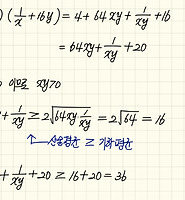 ) (1/x + 16y) = 4 + 64xy + 1/xy + 16
= 64xy + 1/xy + 20
이므로 xy>0
+ 1/xy ≥ 2√(64xy 1/xy) = 2√64 = 16
산술평균 ≥ 기하평균
+ 1/xy + 20 ≥ 16 + 20 = 36